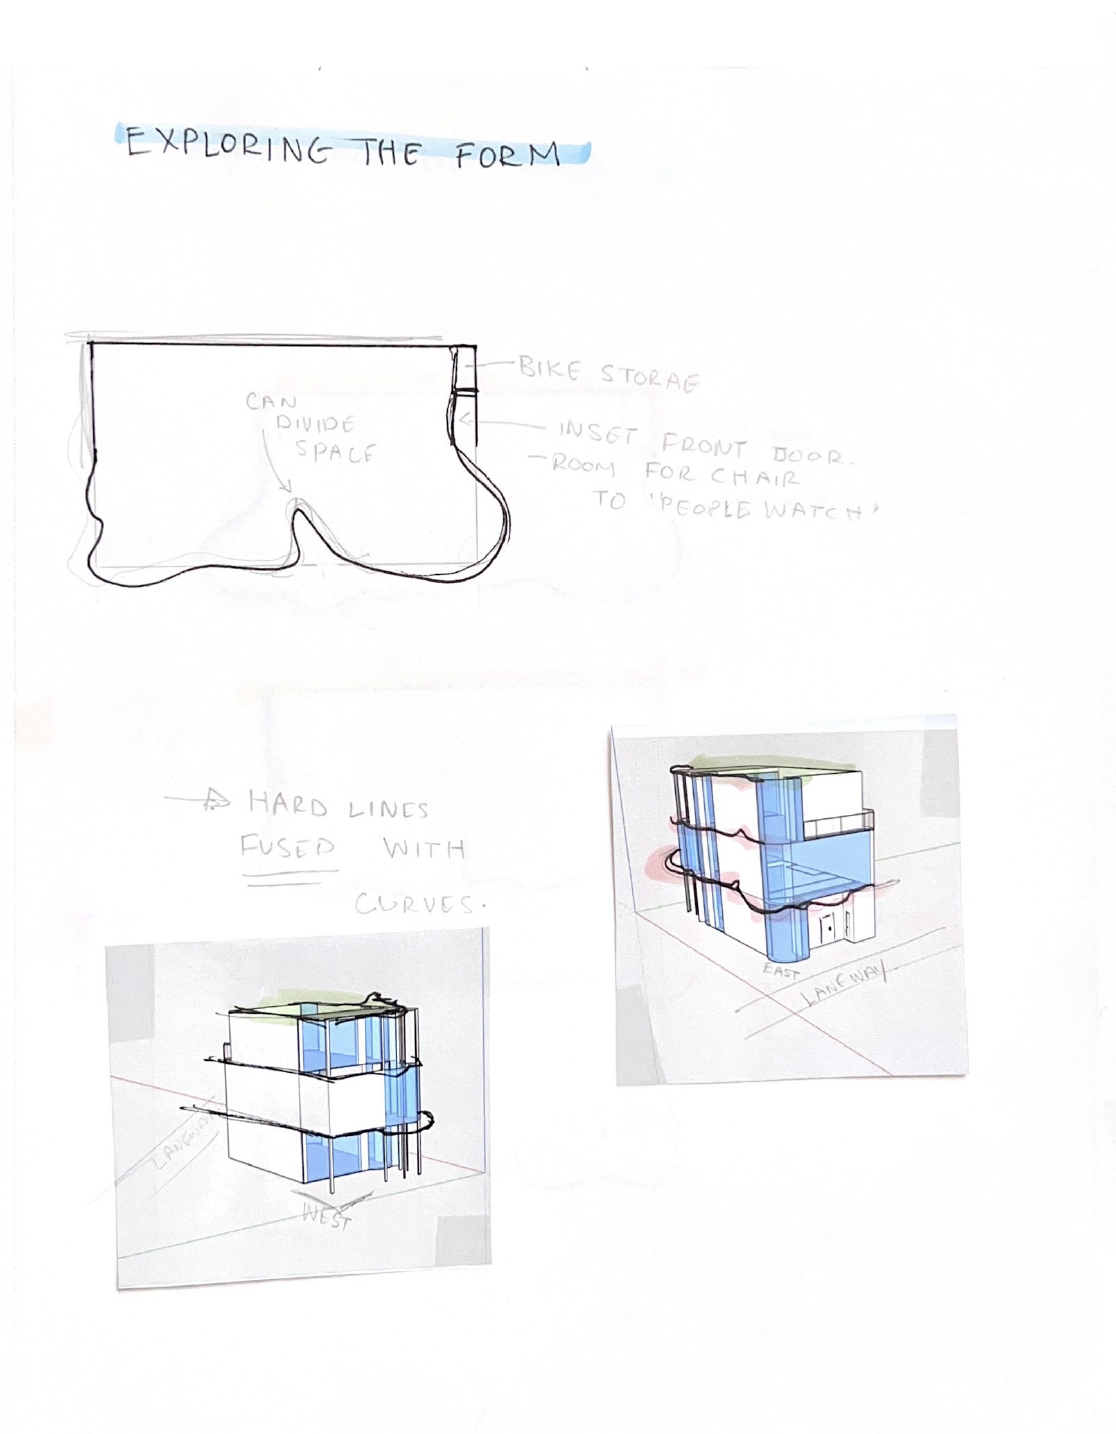 EXPLORING THE FORM
BIKE STORAE
CAN
DIVIDE
SPACE
INSET FRONT DOOR.
-ROOM FOR CHAIR
TO 'PEOPLE WATCH'
→ HARD LINES
FUSED WITH
CURVES.
EAST
LANEWAY
LANEWAY
WEST